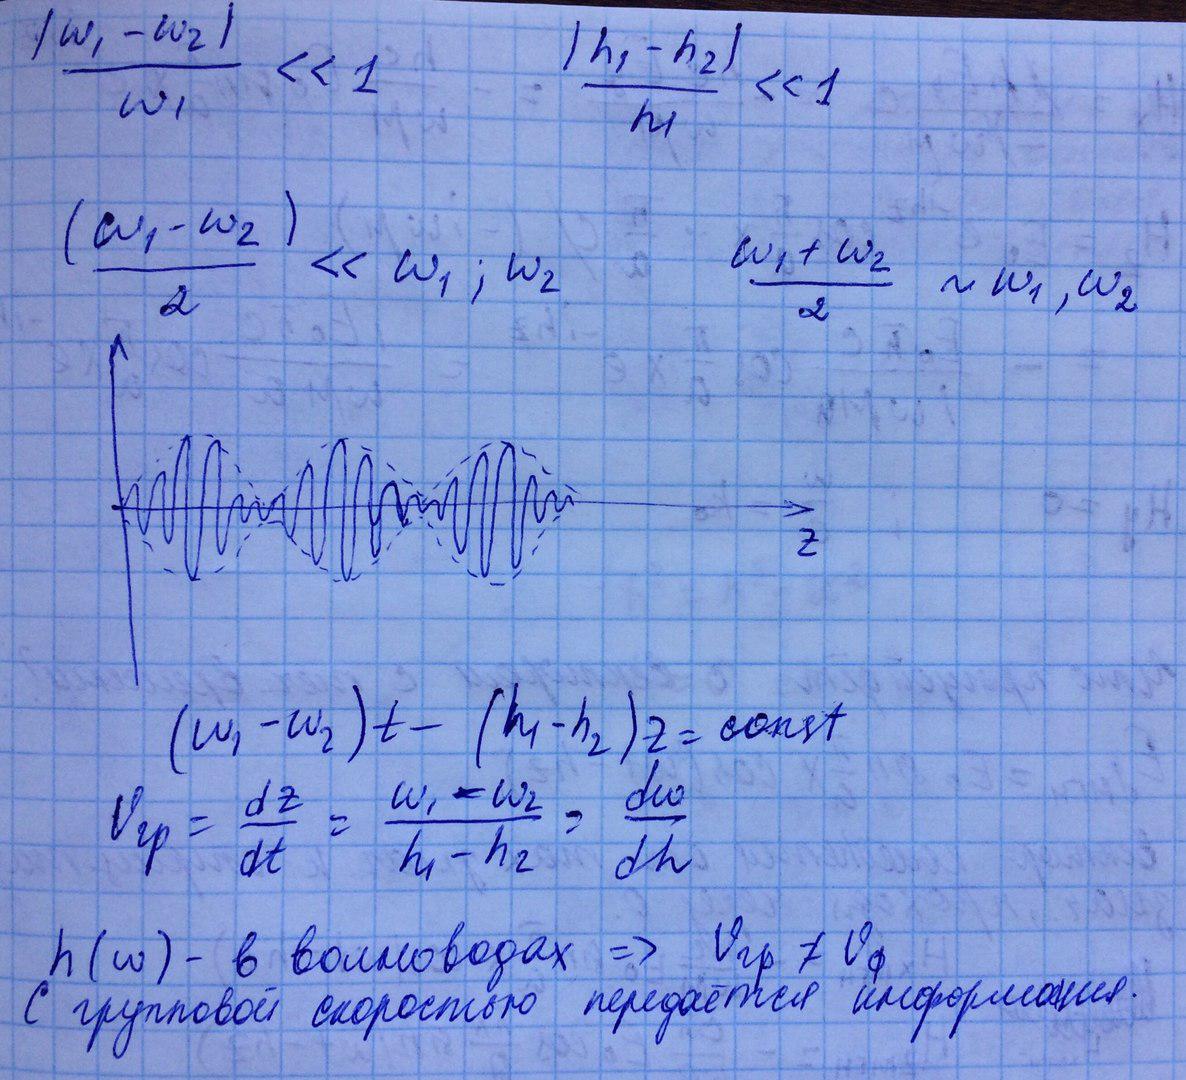 |ω₁ - ω₂| / ω₁ << 1    |h₁ - h₂| / h₁ << 1
(ω₁ - ω₂) / 2 << ω₁ ; ω₂    ω₁ + ω₂ / 2 ~ ω₁, ω₂
z
(ω₁ - ω₂)t - (h₁ - h₂)z = const
Vгр = dz/dt = ω₁ - ω₂ / h₁ - h₂ = dω/dh
h(ω) - в волноводах => Vгр ≠ Vф
С групповой скоростью передаётся информация.